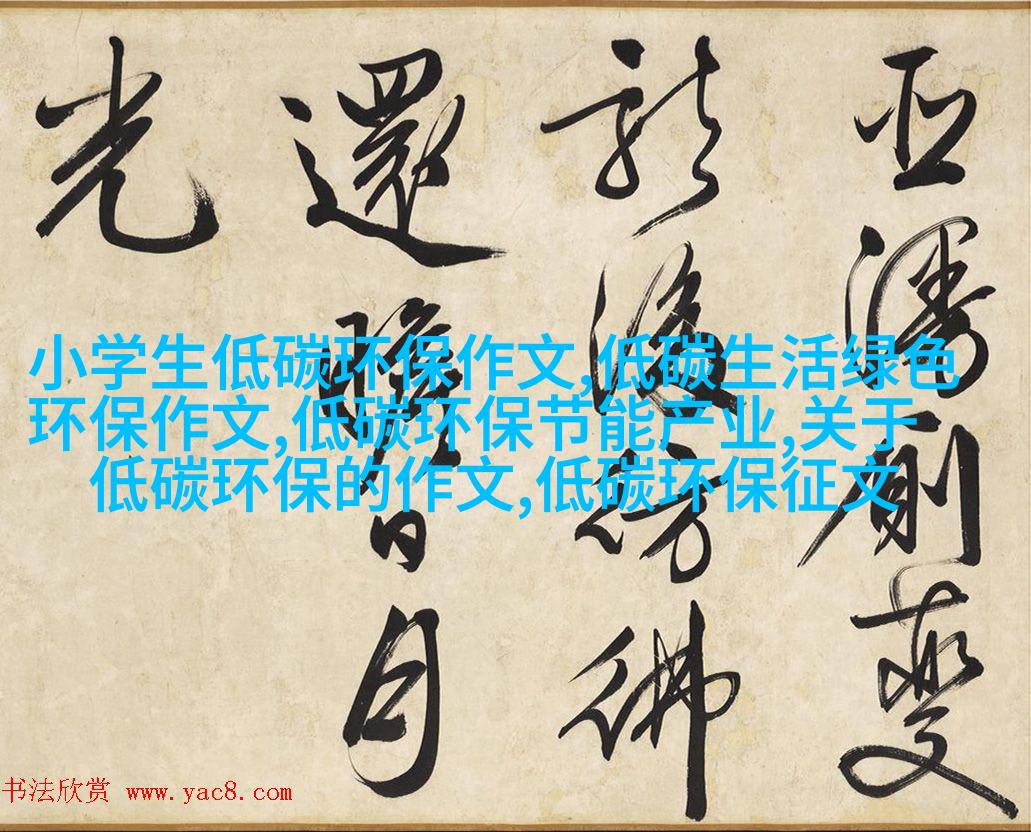 變
彷彿
還瞻日月
光
小学生低碳环保作文,低碳生活绿色
环保作文,低碳环保节能产业,关于
低碳环保的作文,低碳环保征文
书法欣赏 www.yac8.com